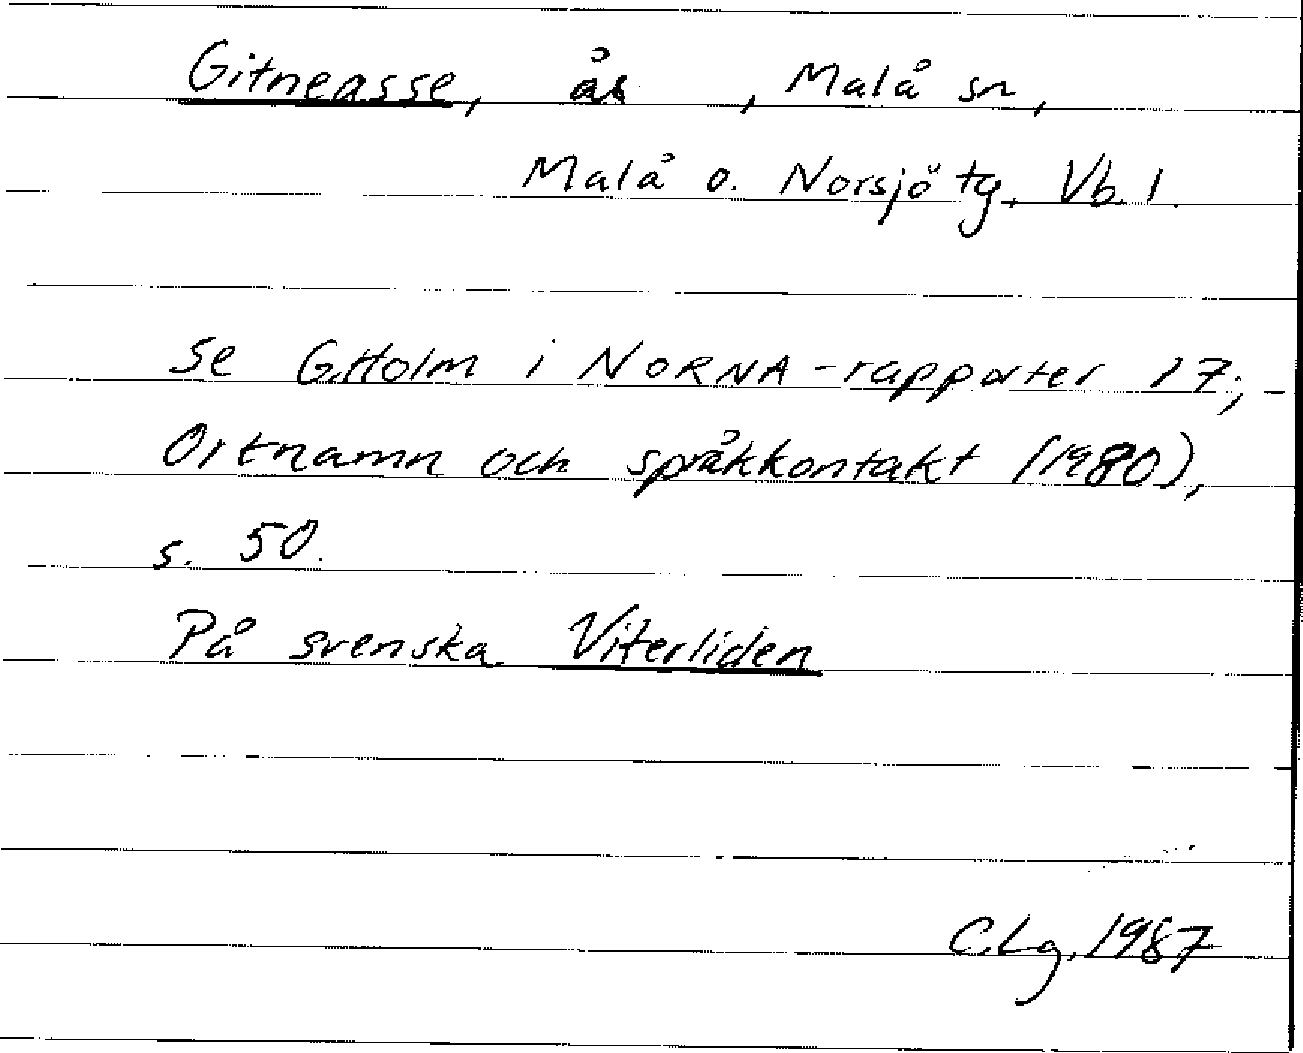 Gitneasse, ås, Malå sn,
Malå o. Norsjö tg, Vb. l.
Se G.Holm i NORNA-rapporter 17;
Ortnamn och språkkontakt (1980),
s. 50.
På svenska Viterliden
C.Lg. 1987